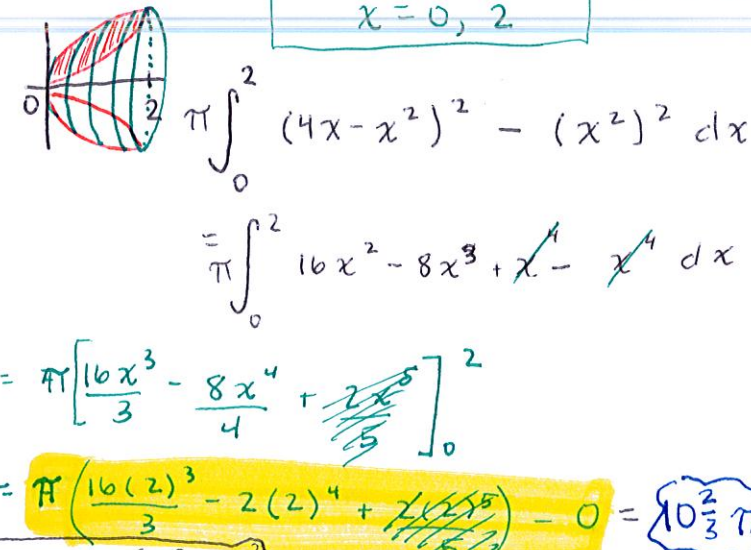 x = 0, 2
0 2
π∫₀² (4x - x²)² - (x²)² dx
= π∫₀² 16x² - 8x³ + x⁴ - x⁴ dx
= π[16x³/3 - 8x⁴/4 + 2x⁵/5]₀²
= π(16(2)³/3 - 2(2)⁴ + 2(2)⁵/5) - 0 = 10 2/3 π